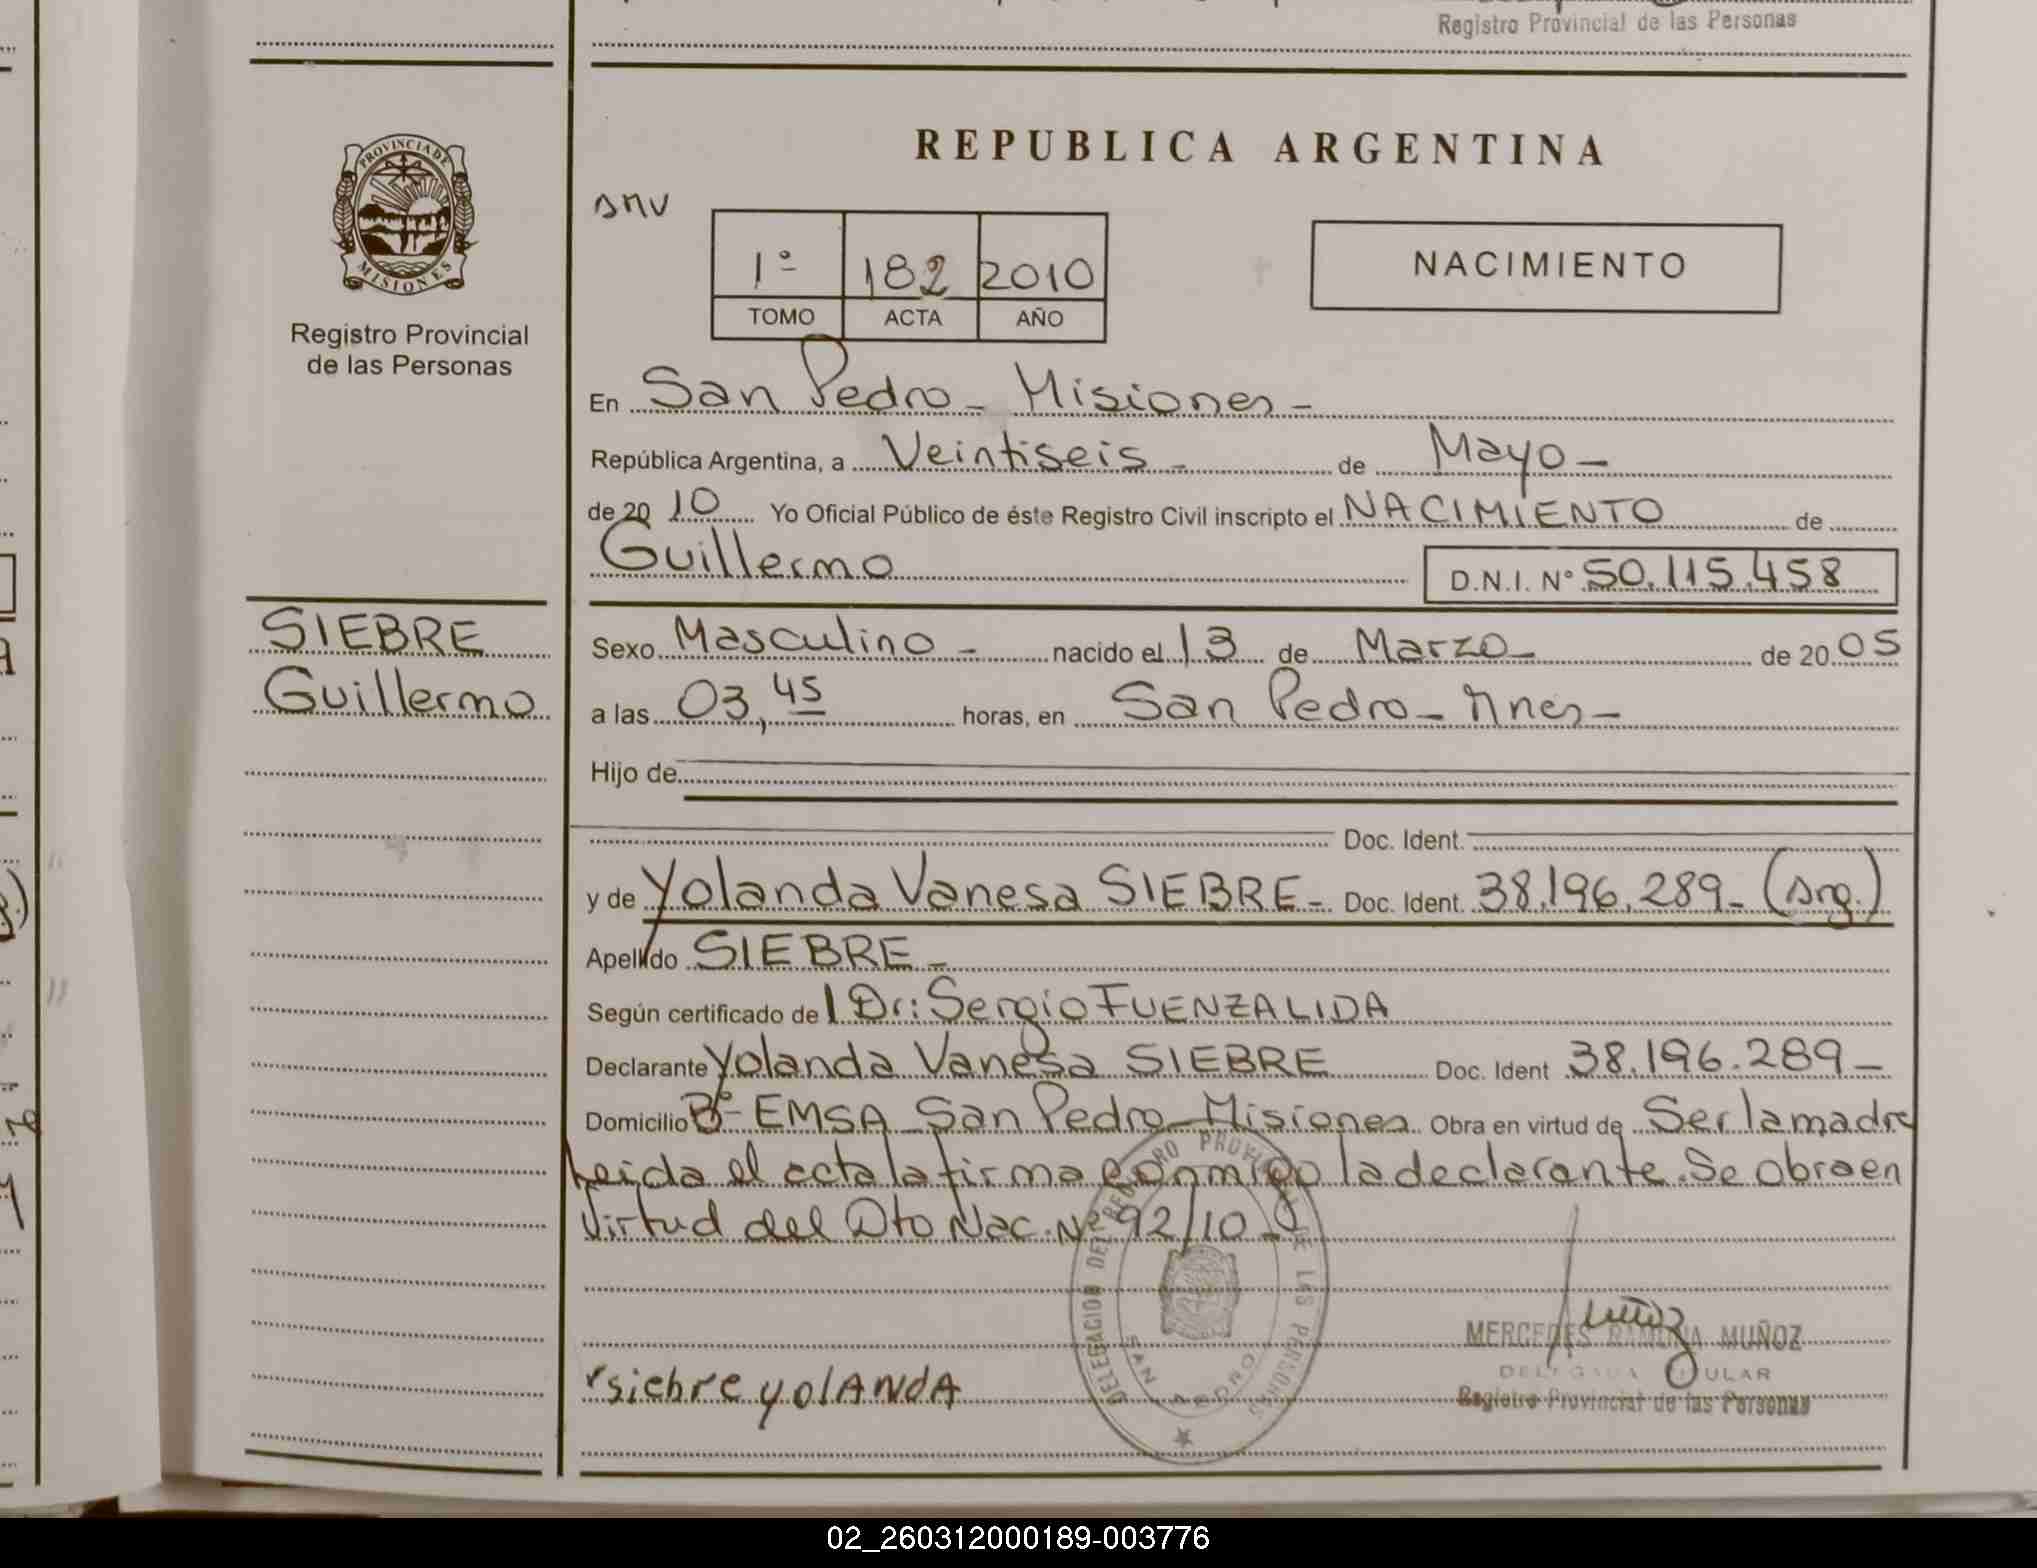 Registro Provincial de las Personas
PROVINCIA DE
MISIONES
Registro Provincial
de las Personas
SIEBRE
Guillermo
REPUBLICA ARGENTINA
1º 182 2010
TOMO ACTA AÑO
NACIMIENTO
En San Pedro - Misiones -
República Argentina, a Veintiseis - de Mayo -
de 20 10 Yo Oficial Público de éste Registro Civil inscripto el NACIMIENTO de
Guillermo D.N.I. Nº 50.115.458
Sexo Masculino - nacido el 13 de Marzo - de 20 05
a las 03,45 horas, en San Pedro - Mnes -
Hijo de
Doc. Ident.
y de Yolanda Vanesa SIEBRE - Doc. Ident. 38.196.289 - (Arg.)
Apellido SIEBRE -
Según certificado de Dr: Sergio FUENZALIDA
Declarante Yolanda Vanesa SIEBRE Doc. Ident 38.196.289 -
Domicilio Bº - EMSA - San Pedro - Misiones Obra en virtud de Ser la madre
Leida el acta la firma conmigo la declarante. Se obra en
Virtud del Dto Nac. Nº 92/10 -
DELEGACION DEL REGISTRO PROVINCIAL DE LAS PERSONAS
SAN PEDRO
siebre yolANdA
Muñoz
MERCEDES RAMONA MUÑOZ
DELEGADA TITULAR
Registro Provincial de las Personas
02_260312000189-003776